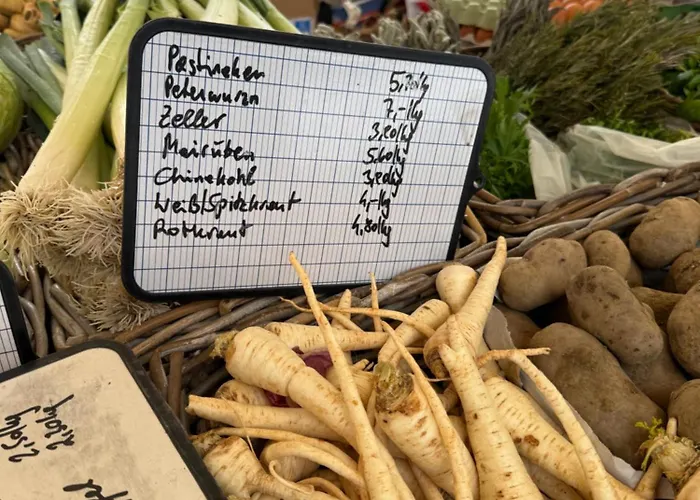 Pastinaken 5,20/kg
Peterwurzn 7,-/kg
Zeller 3,20/kg
Mairüben 5.60/kg
Chinekohl 3,80/kg
Weiß/Spitzkraut 4,-/kg
Rotkraut 4,80/kg
2,50/kg
2,50/kg